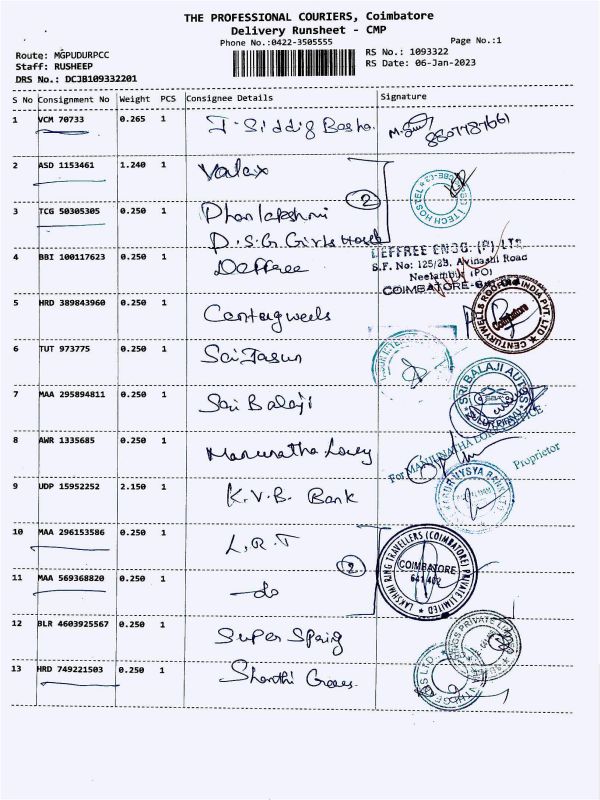 THE PROFESSIONAL COURIERS, Coimbatore
Delivery Runsheet - CMP
Phone No.:0422-3505555
Page No.:1
Route: MGPUDURPCC
RS No.: 1093322
Staff: RUSHEEP
RS Date: 06-Jan-2023
DRS No.: DCJB109332201
S No Consignment No Weight PCS Consignee Details Signature
1 VCM 70733 0.265 1 J. Siddig Basha. 8807787661
2 ASD 1153461 1.240 1 Valax
3 TCG 50305305 0.250 1 Dhanlakshmi 2
D.S.G. Girls Hostel
4 BBI 100117623 0.250 1 Deffree DEFFREE ENGG. (P) LTD
S.F. No: 125/2B, Avinashi Road
Neelambur (PO)
COIMBATORE-
5 HRD 389843960 0.250 1 Centurywells CENTURYWELLS ROOFING INDIA PVT LTD Coimbatore
6 TUT 973775 0.250 1
7 MAA 295894811 0.250 1 Sri Balaji SRI BALAJI AUTOS
8 AWR 1335685 0.250 1 Manunatha Lorry For MANJUNATHA LORRY OFFICE
Proprietor
9 UDP 15952252 2.150 1 K.V.B. Bank KARUR VYSYA BANK LTD
10 MAA 296153586 0.250 1 L.R.T LAKSHMI RING TRAVELLERS (COIMBATORE) PRIVATE LIMITED
COIMBATORE
641 402
11 MAA 569368820 0.250 1 do 2
12 BLR 4603925567 0.250 1 Super Spring
13 HRD 749221503 0.250 1 Shanthi Gears